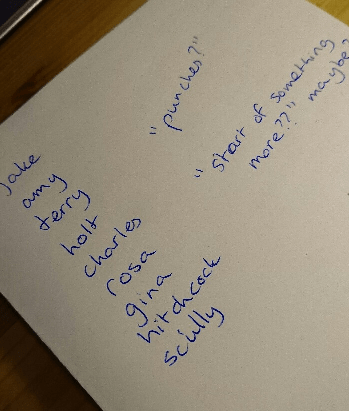 Jake
amy
terry
holt
charles
rosa
gina
hitchcock
scully
"punches?"
"start of something
more??" maybe?